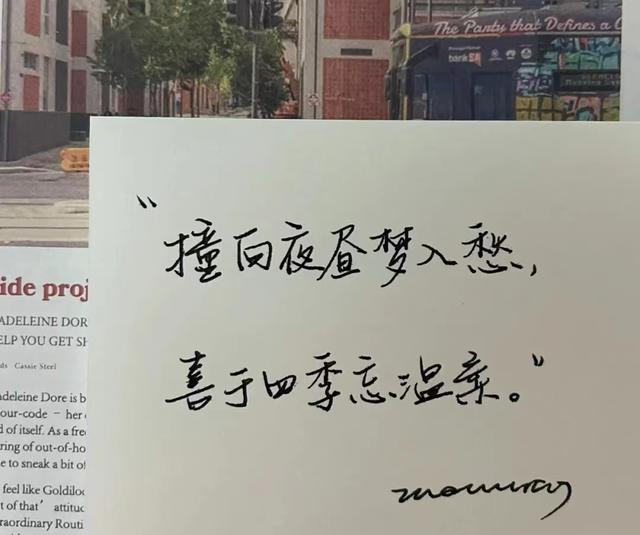 The Party that Defines a C
bankSA
ide proj
ADELEINE DOR
ELP YOU GET SH
ds Cassie Steel
adeleine Dore is b
our-code – her
d of itself. As a free
ring of out-of-ho
e to sneak a bit of
feel like Goldiloc
t of that' attitud
raordinary Routi
“撞向夜昼梦入愁，
喜于四季忘温柔。”